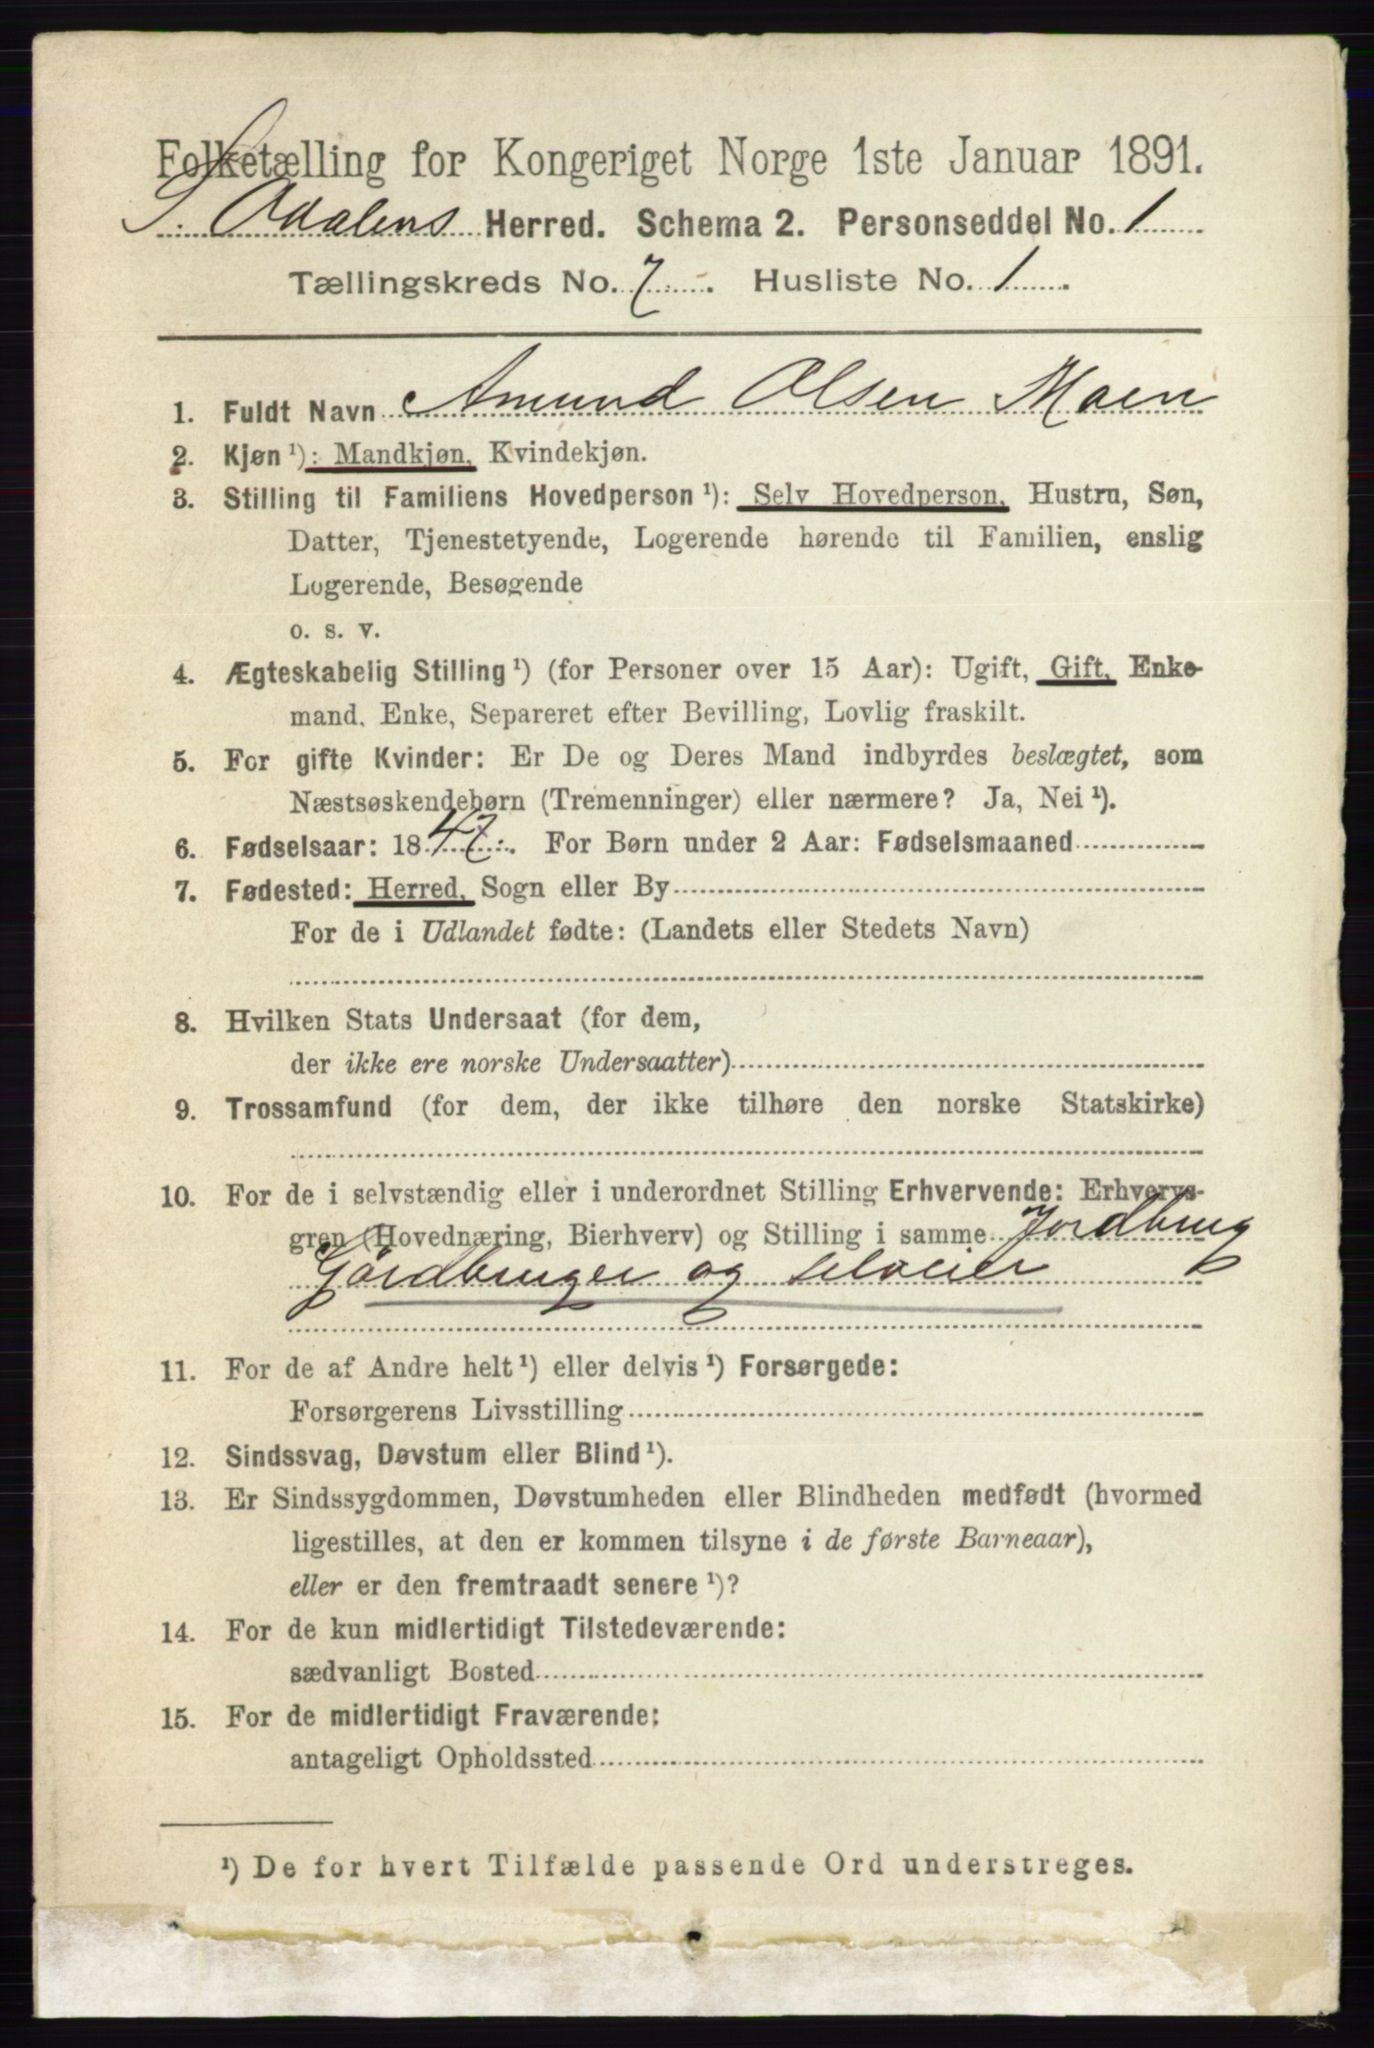 Folketælling for Kongeriget Norge 1ste Januar 1891.
S. Odalens Herred. Schema 2. Personseddel No. 1
Tællingskreds No. 7. Husliste No. 1.
1. Fuldt Navn Amund Olsen Moen
2. Kjøn ¹): Mandkjøn, Kvindekjøn.
3. Stilling til Familiens Hovedperson ¹): Selv Hovedperson, Hustru, Søn,
Datter, Tjenestetyende, Logerende hørende til Familien, enslig
Logerende, Besøgende
o. s. v.
4. Ægteskabelig Stilling ¹) (for Personer over 15 Aar): Ugift, Gift, Enke-
mand, Enke, Separeret efter Bevilling, Lovlig fraskilt.
5. For gifte Kvinder: Er De og Deres Mand indbyrdes beslægtet, som
Næstsøskendebørn (Tremenninger) eller nærmere? Ja, Nei ¹).
6. Fødselsaar: 1847. For Børn under 2 Aar: Fødselsmaaned
7. Fødested: Herred, Sogn eller By
For de i Udlandet fødte: (Landets eller Stedets Navn)
8. Hvilken Stats Undersaat (for dem,
der ikke ere norske Undersaatter)
9. Trossamfund (for dem, der ikke tilhøre den norske Statskirke)
10. For de i selvstændig eller i underordnet Stilling Erhvervende: Erhvervs-
gren (Hovednæring, Bierhverv) og Stilling i samme Jordbrug
Gårdbruger og selveier
11. For de af Andre helt ¹) eller delvis ¹) Forsørgede:
Forsørgerens Livsstilling
12. Sindssvag, Døvstum eller Blind ¹).
13. Er Sindssygdommen, Døvstumheden eller Blindheden medfødt (hvormed
ligestilles, at den er kommen tilsyne i de første Barneaar),
eller er den fremtraadt senere ¹)?
14. For de kun midlertidigt Tilstedeværende:
sædvanligt Bosted
15. For de midlertidigt Fraværende:
antageligt Opholdssted
¹) De for hvert Tilfælde passende Ord understreges.